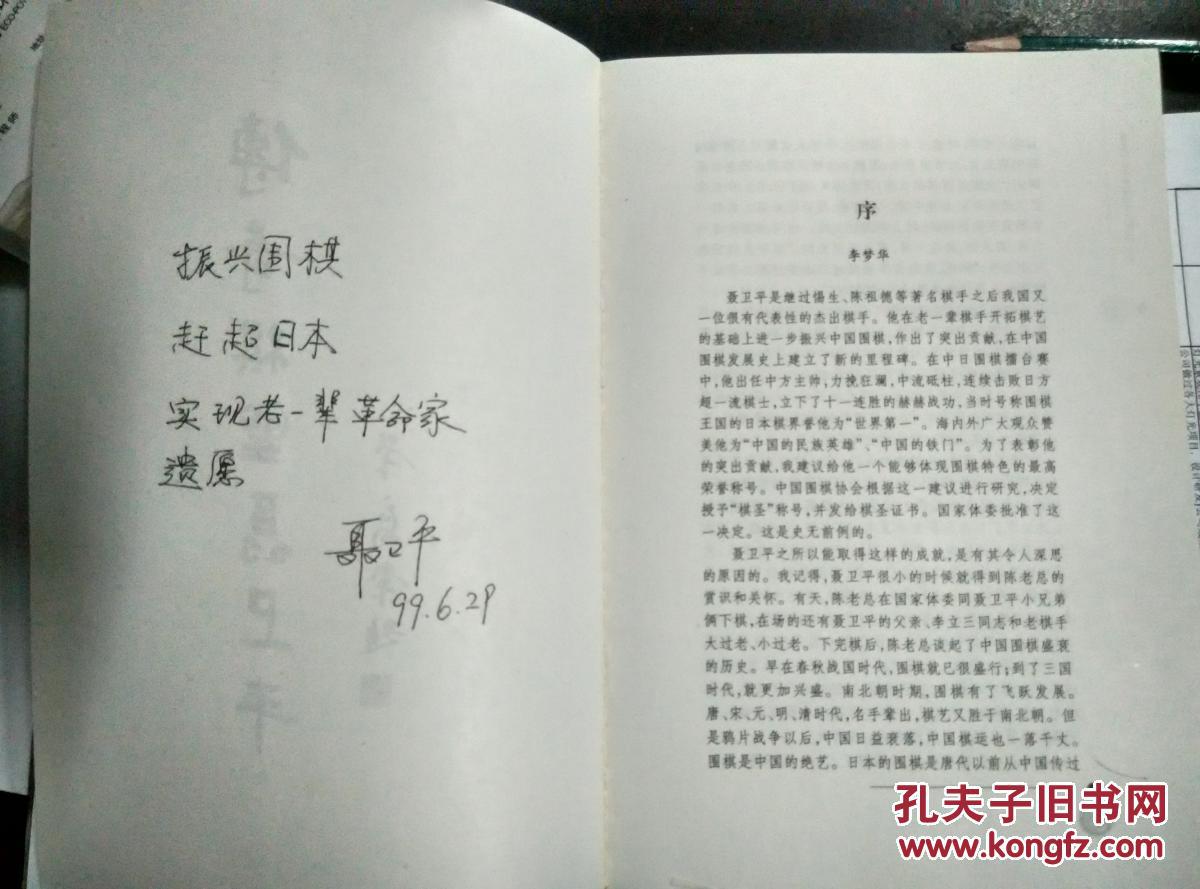 振兴围棋
赶超日本
实现老一辈革命家
遗愿
聂卫平
99.6.29
序
李梦华
聂卫平是继过惕生、陈祖德等著名棋手之后我国又
一位很有代表性的杰出棋手。他在老一辈棋手开拓棋艺
的基础上进一步振兴中国围棋，作出了突出贡献，在中国
围棋发展史上建立了新的里程碑。在中日围棋擂台赛
中，他出任中方主帅，力挽狂澜，中流砥柱，连续击败日方
超一流棋士，立下了十一连胜的赫赫战功，当时号称围棋
王国的日本棋界誉他为“世界第一”。海内外广大观众赞
美他为“中国的民族英雄”、“中国的铁门”。为了表彰他
的突出贡献，我建议给他一个能够体现围棋特色的最高
荣誉称号。中国围棋协会根据这一建议进行研究，决定
授予“棋圣”称号，并发给棋圣证书。国家体委批准了这
一决定。这是史无前例的。
聂卫平之所以能取得这样的成就，是有其令人深思
的原因的。我记得，聂卫平很小的时候就得到陈老总的
赏识和关怀。有天，陈老总在国家体委同聂卫平小兄弟
俩下棋，在场的还有聂卫平的父亲、李立三同志和老棋手
大过老、小过老。下完棋后，陈老总谈起了中国围棋盛衰
的历史。早在春秋战国时代，围棋就已很盛行；到了三国
时代，就更加兴盛。南北朝时期，围棋有了飞跃发展。
唐、宋、元、明、清时代，名手辈出，棋艺又胜于南北朝。但
是鸦片战争以后，中国日益衰落，中国棋运也一落千丈。
围棋是中国的绝艺。日本的围棋是唐代以前从中国传过
孔夫子旧书网
www.kongfz.com